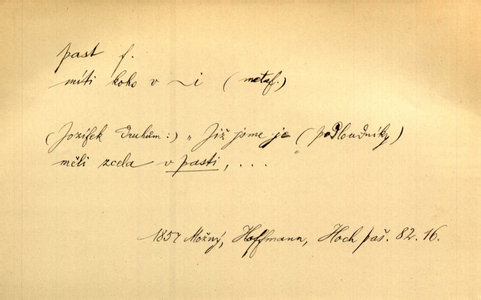 past f.
míti koho v ~i (metaf.)
(Jozífek druhům:) „Již jsme je (podloudníky)
měli zcela v pasti, ...
1857 Možný, Hoffmann, Hoch paš. 82. 16.